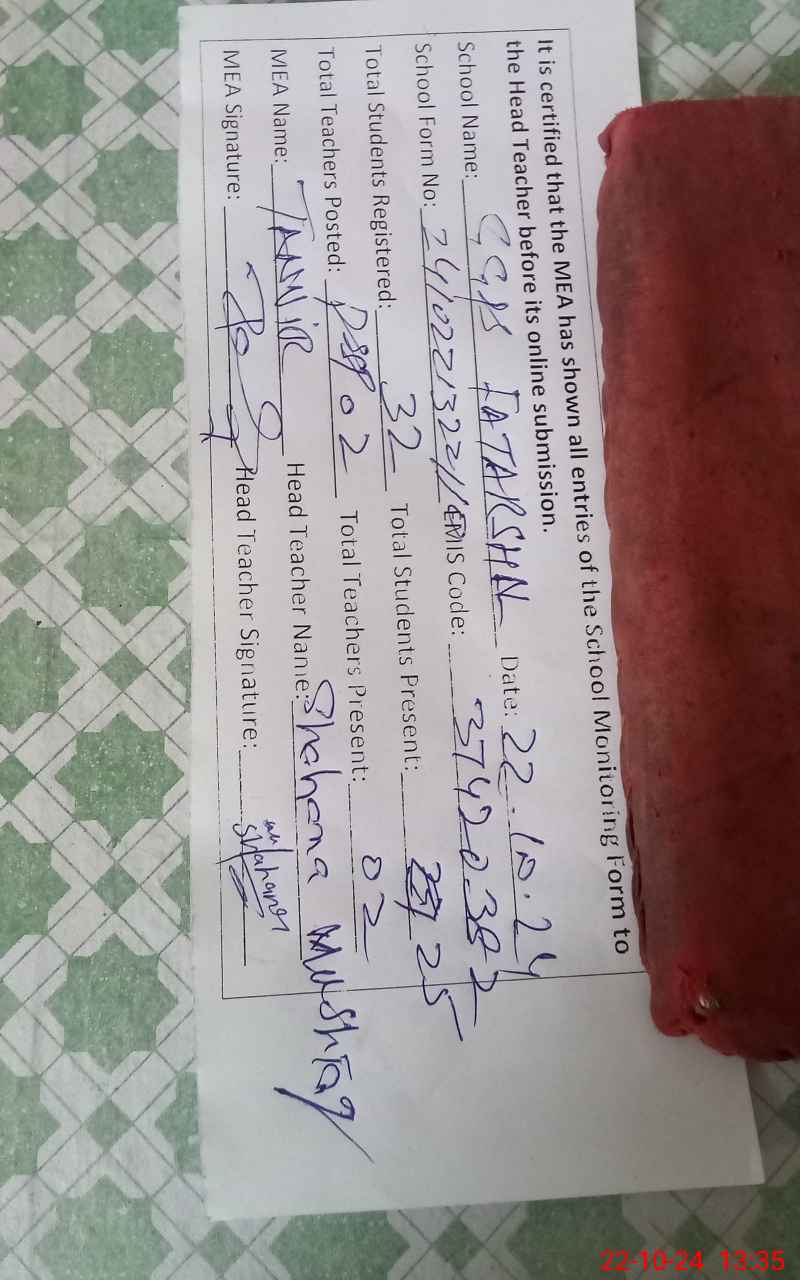 It is certified that the MEA has shown all entries of the School Monitoring Form to
the Head Teacher before its online submission.
School Name: GGPS FATARSHN Date: 22.10.24
School Form No: EMIS Code: 37420382
Total Students Registered: 32 Total Students Present: 25
Total Teachers Posted: 02 Total Teachers Present: 02
MEA Name: TANVIR Head Teacher Name: Shahana Mushtaq
MEA Signature: Head Teacher Signature: Shahana
22-10-24 13:35